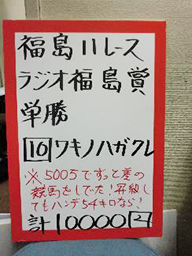 福島11レース
ラジオ福島賞
単勝
16 ワキノハガクレ
※500万でずっと差の
競馬をしてた!昇級し
てもハンデ54キロなら!
計10000円